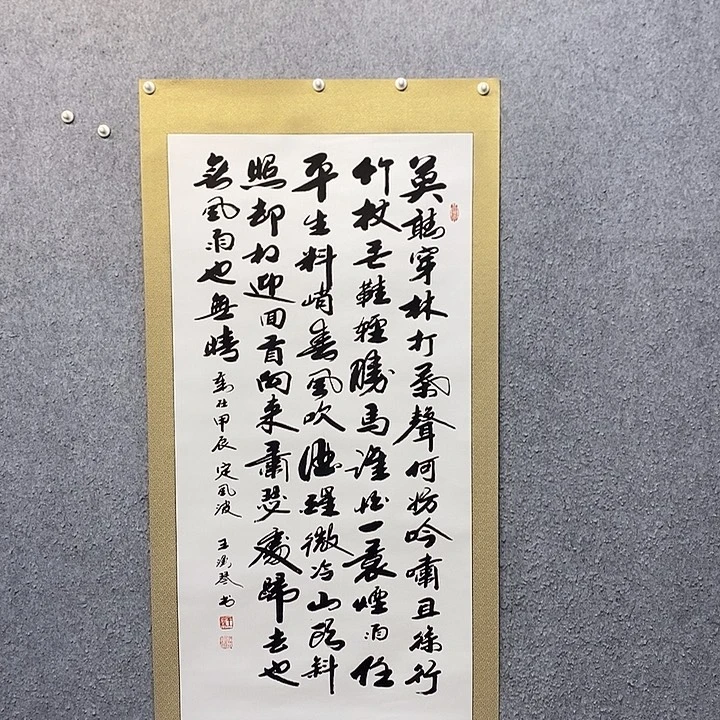 英聽穿林打葉聲何妨吟嘯且徐行
竹杖芒鞋輕勝馬誰怕一蓑煙雨任
平生料峭春風吹酒醒微冷山頭斜
照却相迎回首向来蕭瑟處歸去也
無風雨也無晴 歲在甲辰 定風波 王琴书